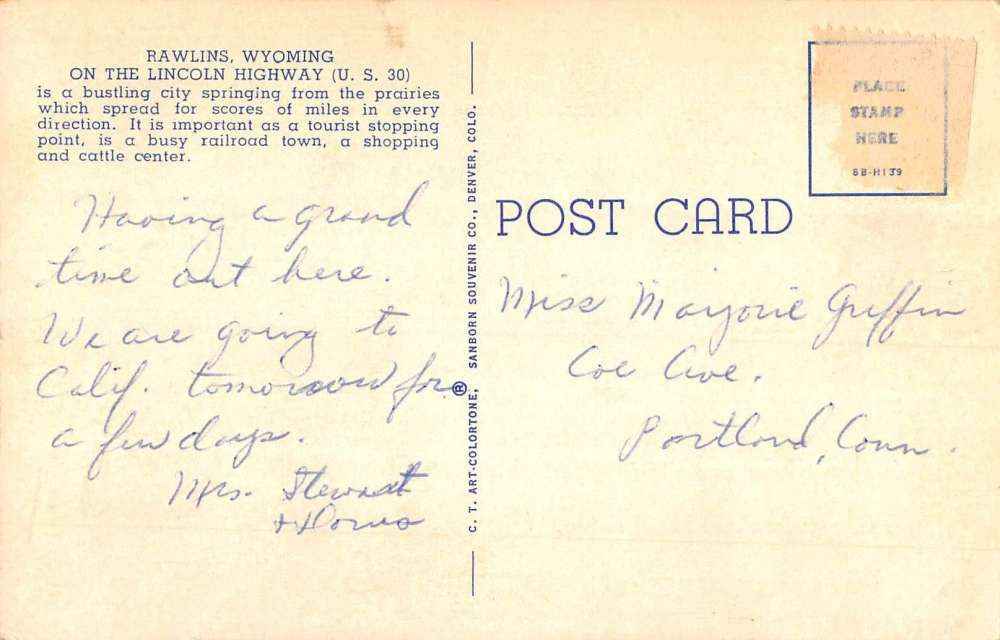 RAWLINS, WYOMING
ON THE LINCOLN HIGHWAY (U. S. 30)
is a bustling city springing from the prairies
which spread for scores of miles in every
direction. It is important as a tourist stopping
point, is a busy railroad town, a shopping
and cattle center.
Having a grand
time out here.
We are going to
Calif. tomorrow for
a few days.
Mrs. Stewart
+ Doris
C. T. ART-COLORTONE, ® SANBORN SOUVENIR CO., DENVER, COLO.
POST CARD
PLACE
STAMP
HERE
8B-H139
Miss Marjorie Griffin
Coe Ave.
Portland, Conn.